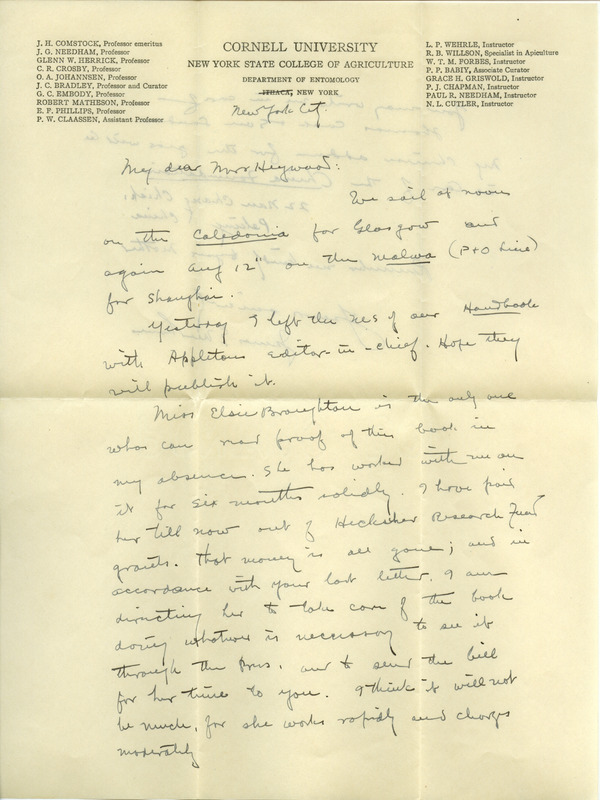 J. H. COMSTOCK, Professor emeritus
J. G. NEEDHAM, Professor
GLENN W. HERRICK, Professor
C. R. CROSBY, Professor
O. A. JOHANNSEN, Professor
J. C. BRADLEY, Professor and Curator
G. C. EMBODY, Professor
ROBERT MATHESON, Professor
E. F. PHILLIPS, Professor
P. W. CLAASSEN, Assistant Professor
CORNELL UNIVERSITY
NEW YORK STATE COLLEGE OF AGRICULTURE
DEPARTMENT OF ENTOMOLOGY
ITHACA, NEW YORK
New York City
L. P. WEHRLE, Instructor
R. B. WILLSON, Specialist in Apiculture
W. T. M. FORBES, Instructor
P. P. BABIY, Associate Curator
GRACE H. GRISWOLD, Instructor
P. J. CHAPMAN, Instructor
PAUL R. NEEDHAM, Instructor
N. L. CUTLER, Instructor
My dear Miss Heywood:
We sail at noon
on the Caledonia for Glasgow and
again Aug 12" on the Malwa (P+O Line)
for Shanghai.
Yesterday I left the MS of our Handbook
with Appletons editor-in-chief. Hope they
will publish it.
Miss Elsie Broughton is the only one
who can read proof of this book in
my absence. She has worked with me on
it for six months solidly. I have paid
her till now out of Heckscher Research Fund
grants. That money is all gone; and in
accordance with your last letter, I am
directing her to take care of the book
doing whatever is necessary to see it
through the press, and to send the bill
for her time to you. I think it will not
be much, for she works rapidly and charges
moderately